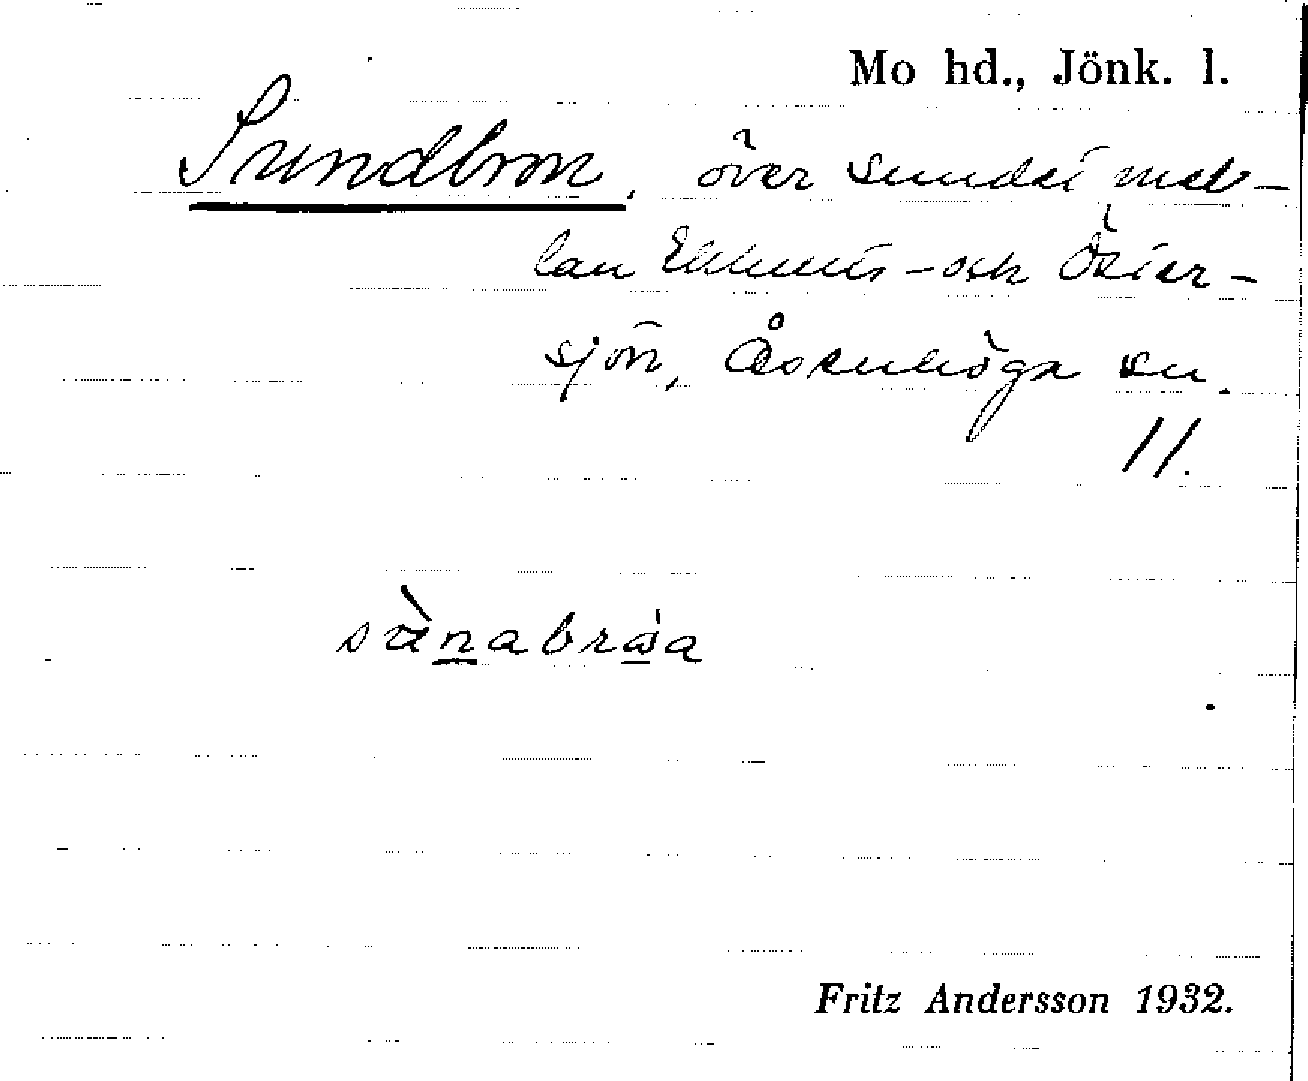 Mo hd., Jönk. l.
Sundbron. över sundet mel-
lan - och Öster-
sjön, Åsenhöga sn.
11.
sànabråa
Fritz Andersson 1932.